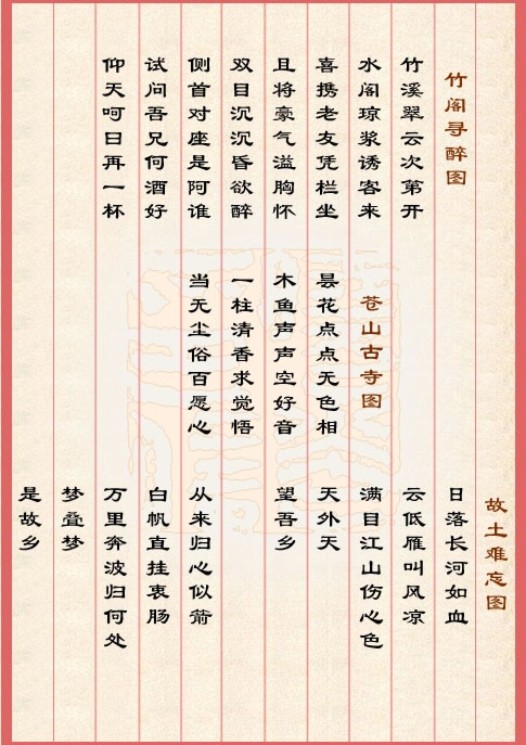 竹阁寻醉图
竹溪翠云次第开
水阁琼浆诱客来
喜携老友凭栏坐
且将豪气溢胸怀
双目沉沉昏欲醉
侧首对座是阿谁
试问吾兄何酒好
仰天呵日再一杯
苍山古寺图
昙花点点无色相
木鱼声声空好音
一柱清香求觉悟
当无尘俗百愿心
故土难忘图
日落长河如血
云低雁叫风凉
满目江山伤心色
天外天
望吾乡
从来归心似箭
白帆直挂衷肠
万里奔波归何处
梦叠梦
是故乡